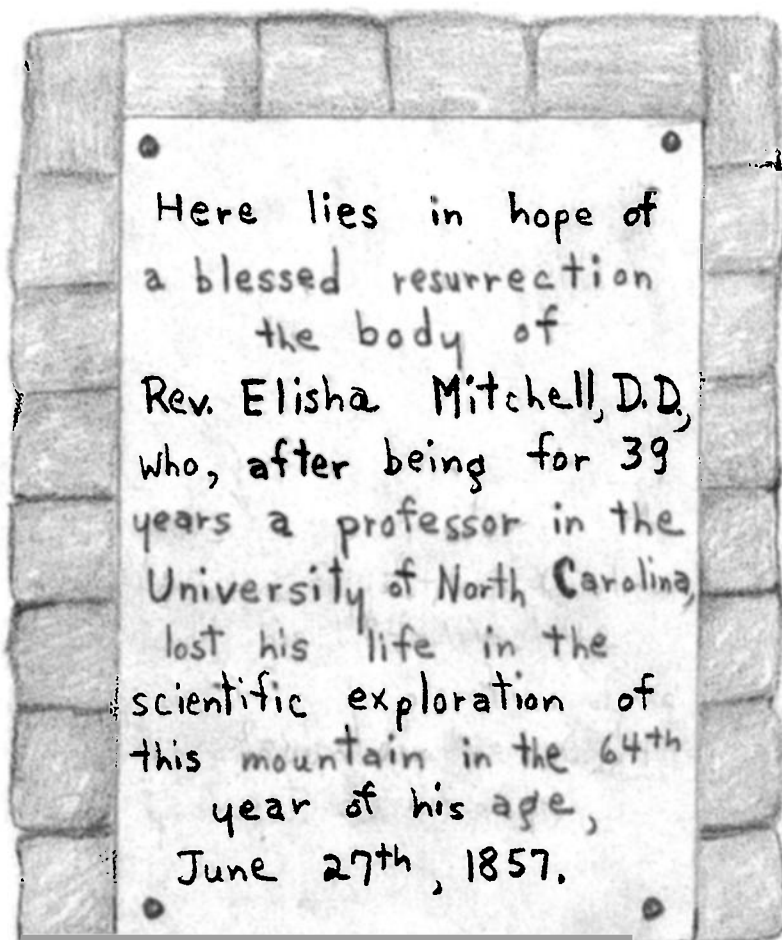 Here lies in hope of
a blessed resurrection
the body of
Rev. Elisha Mitchell, D.D.,
who, after being for 39
years a professor in the
University of North Carolina,
lost his life in the
scientific exploration of
this mountain in the 64th
year of his age,
June 27th, 1857.